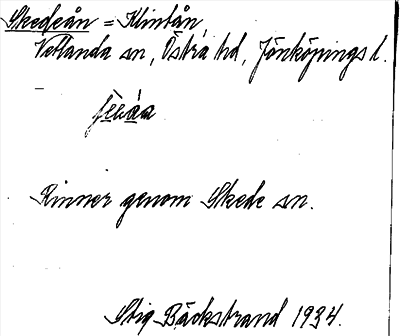 Skedeån = Klintån
Vetlanda sn, Östra hd, Jönköpings l.
Rinner genom Skede sn.
Stig Bäckstrand 1934.